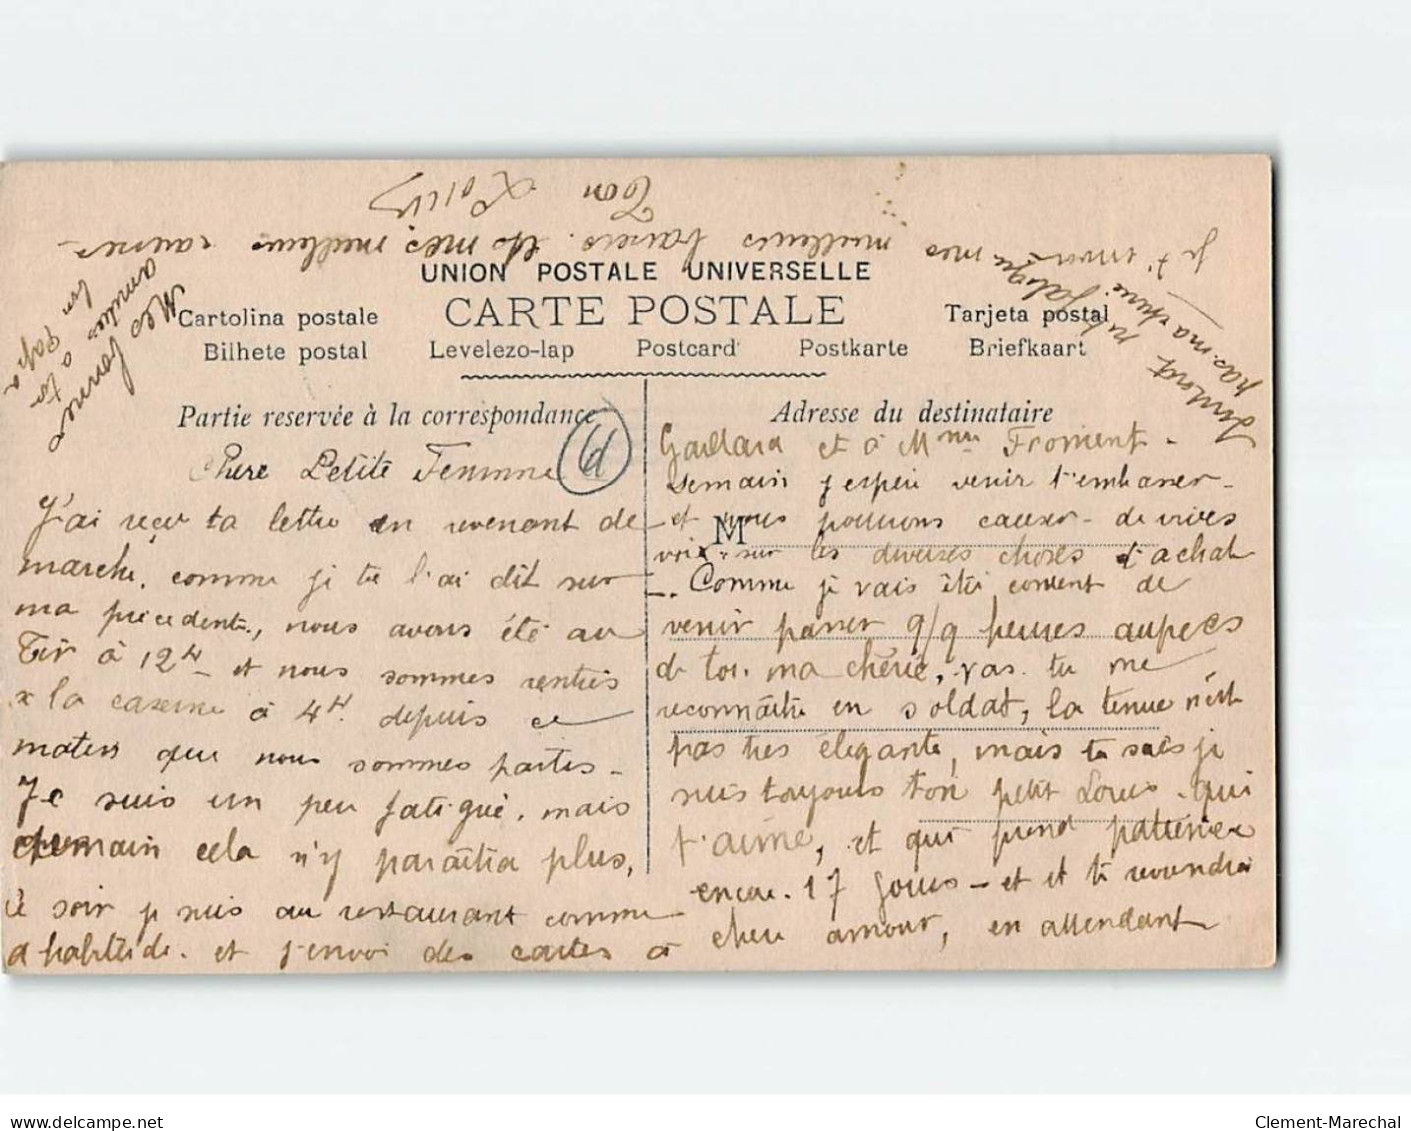 UNION POSTALE UNIVERSELLE
CARTE POSTALE
Cartolina postale
Tarjeta postal
Bilhete postal Levelezo-lap Postcard Postkarte Briefkaart
Partie reservée à la correspondance
Adresse du destinataire
Chere Petite Femme
J'ai reçu ta lettre en revenant de
marche, comme je te l'ai dit sur
ma précedente, nous avons été au
Tir à 12H et nous sommes rentrés
à la caserne à 4H. depuis ce
matin que nous sommes partis -
Je suis un peu fatigué, mais
demain cela n'y paraîtra plus,
ce soir je suis au restaurant comme
d'habitude. et j'envoi des cartes à
Gaillard et à Mme Froment -
demain j'espère venir t'embrasser -
et nous pourrons causer - de vives
M
voix - sur les diverses choses d'achat
- Comme je vais être content de
venir passer q/q heures auprès
de toi. ma chérie, vas-tu me
reconnaître en soldat, la tenue n'est
pas très élégante, mais tu sais je
suis toujours ton petit Louis - qui
t'aime, et qui prend patience
encore. 17 jours - et il te reviendra
chere amour, en attendant
je t'envoi mes meilleurs baisers. et mes meilleurs caresses
Ton Louis
Mes bonnes
amitiés à ton
bon Papa
Surtout
pas. ma chérie
6d
Clement-Marechal
www.delcampe.net